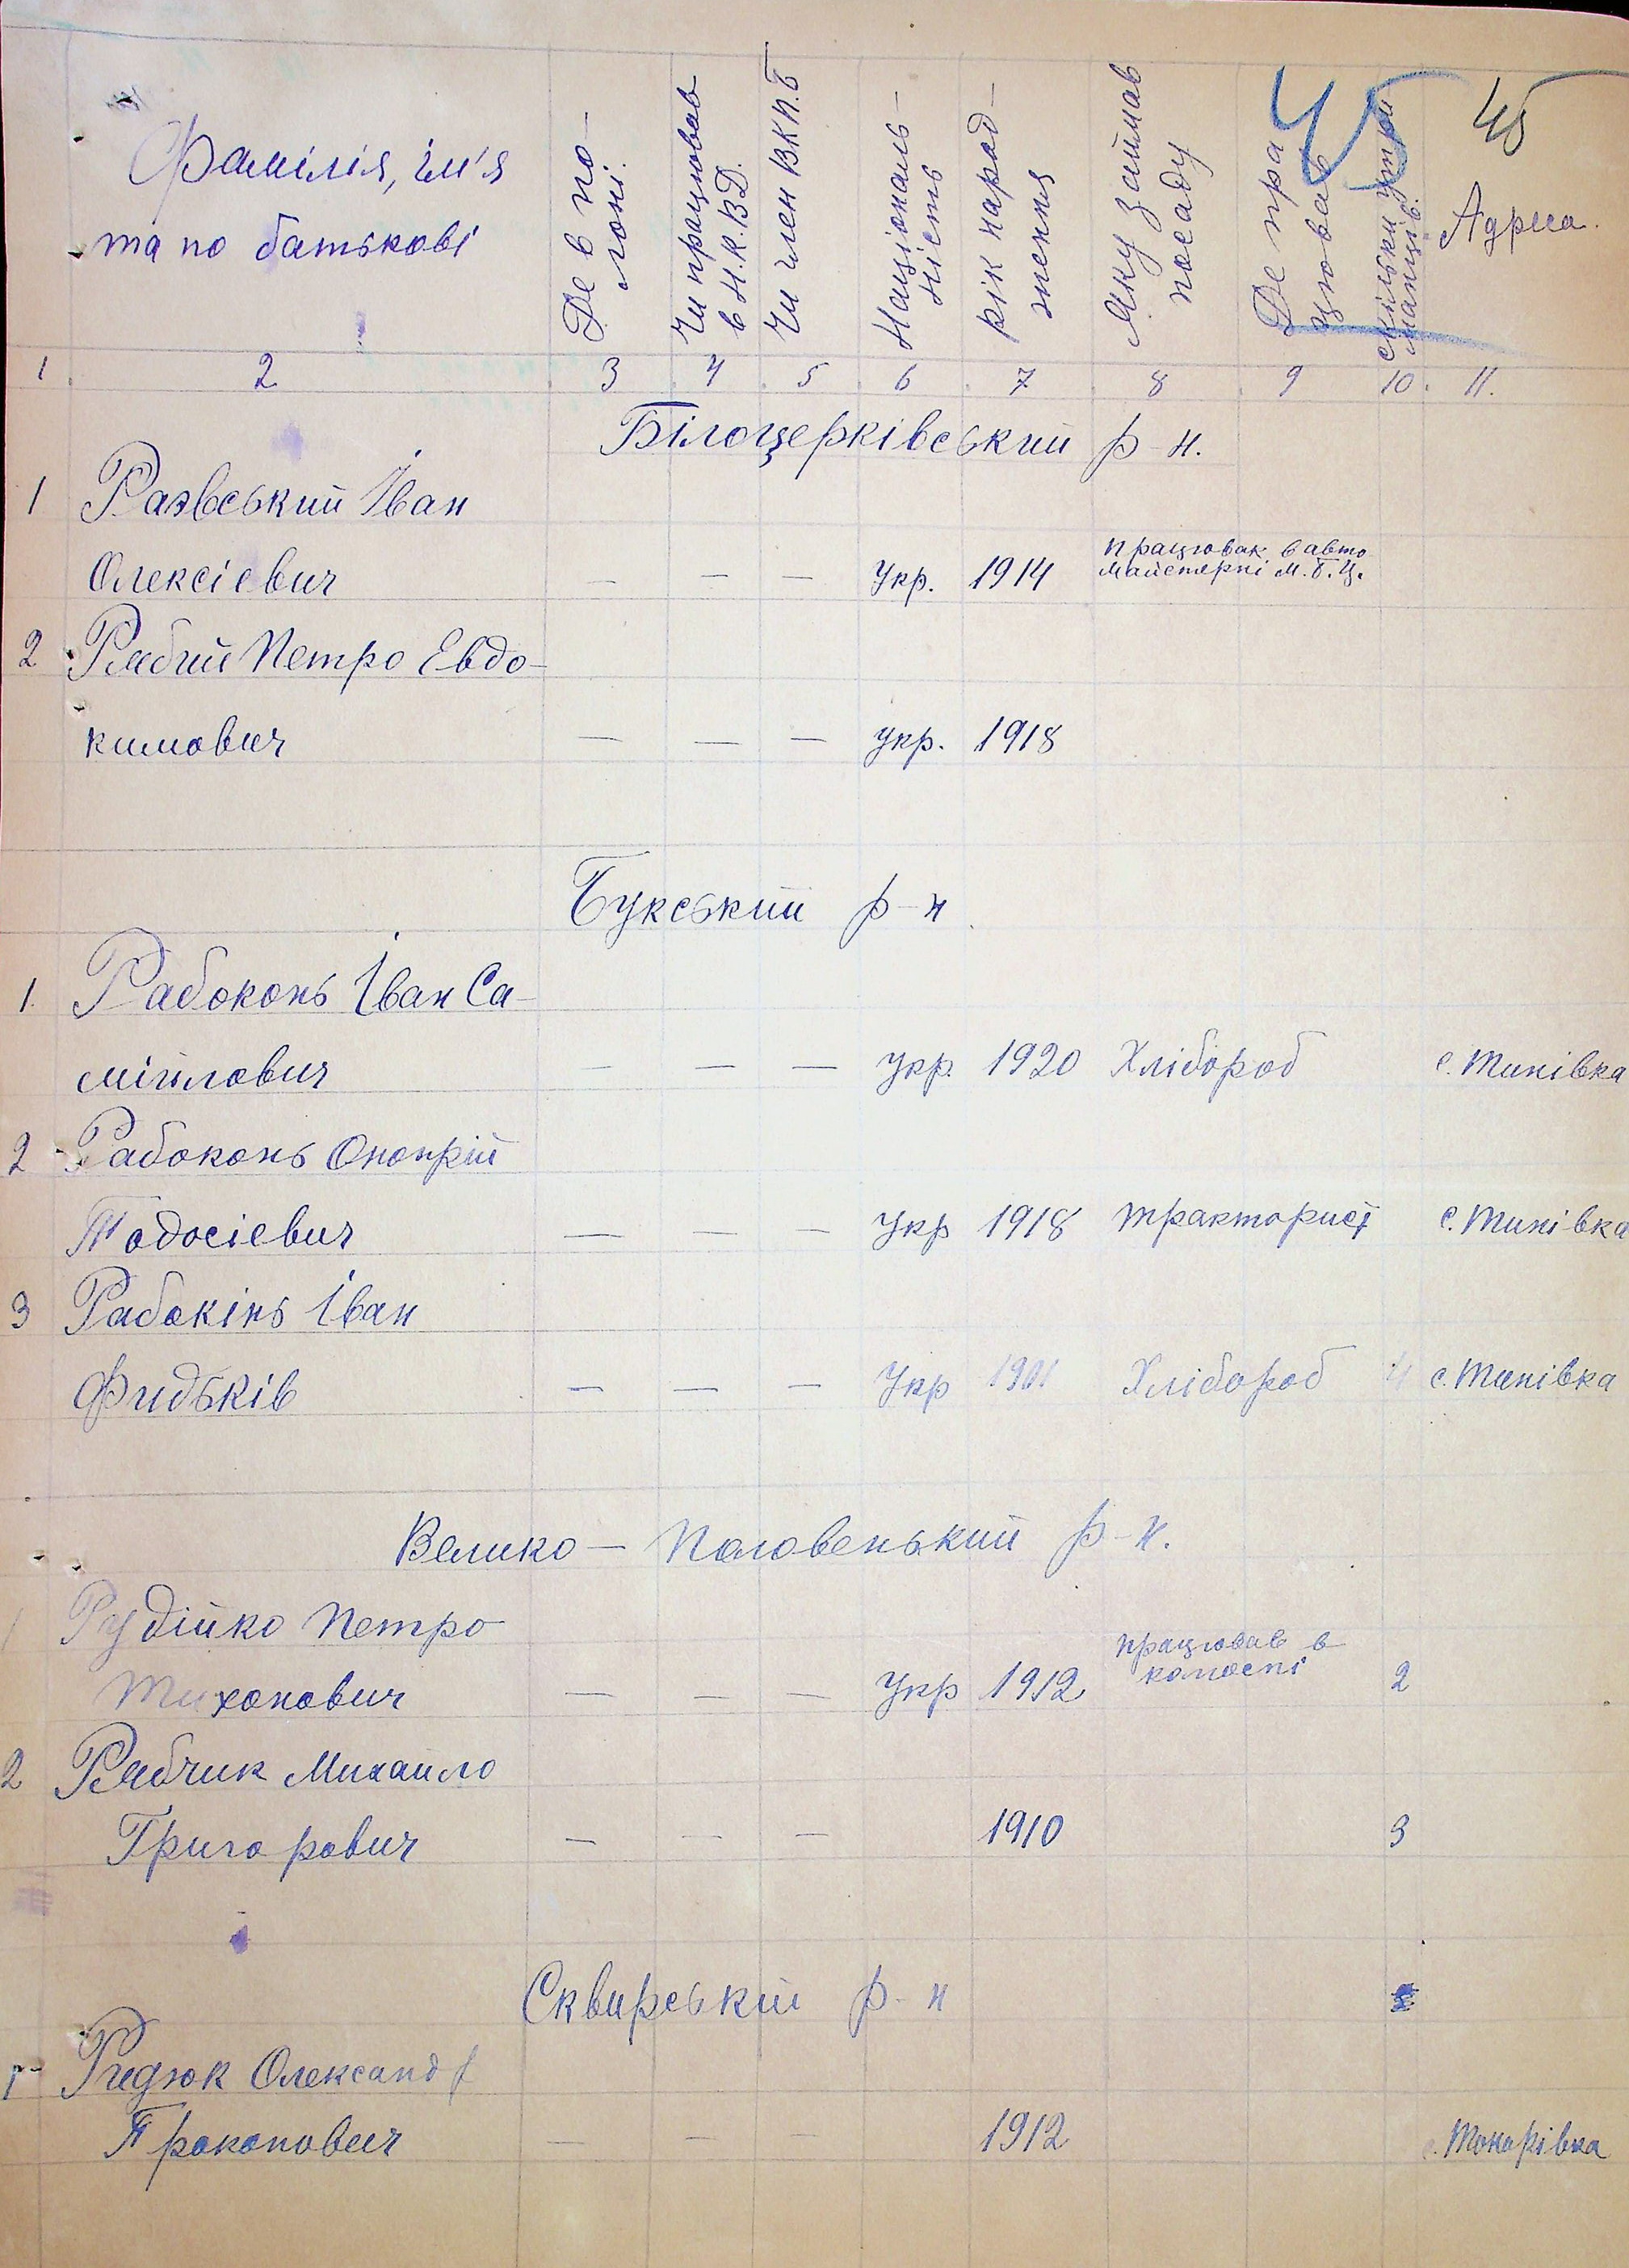 45
45
Фамілія, ім'я
та по батькові
Де в по-
лоні.
Чи працював
в Н.К.В.Д.
Чи член ВКП.Б
Національ-
ність
рік народ-
ження
Яку займав
посаду
Де пра
цював
скільки утри
манців.
Адреса.
1 2 3 4 5 6 7 8 9 10. 11.
Білоцерківський р-н.
1 Развський Іван
Олексієвич — — — Укр. 1914 працював в авто
майстерні М.Б.Ц.
2 Рябий Петро Евдо-
кимович — — — укр. 1918
Букський р-н
1. Рабоконь Іван Са-
мійлович — — — Укр. 1920 Хлібороб с. Типівка
2 Рабоконь Онопрій
Тодосієвич — — — Укр 1918 тракторист с. Типівка
3 Рабокінь Іван
Фидьків — — — Укр 1901 Хлібороб 4 с. Типівка
Велико-Половенький р-н.
1 Рудійко Петро
Тихонович — — — Укр 1912 працював в
колоспі 2
2 Рябчик Михайло
Григорович — — — 1910 3
Сквирський р-н
1 Редзюк Олександр
Прокопович — — — 1912 с. Токарівка